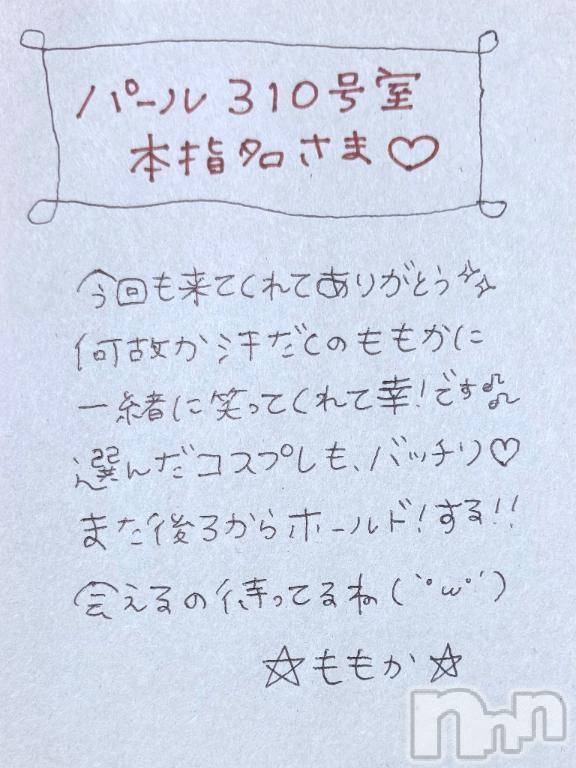 パール310号室
本指名さま♡
今回も来てくれてありがとう✨
何故か汗だくのももかに
一緒に笑ってくれて幸!です♫
選んだコスプレも、バッチリ♡
また後ろからホールド!する!!
会えるの待ってるね(`°ω°´)
☆ももか☆
nnn